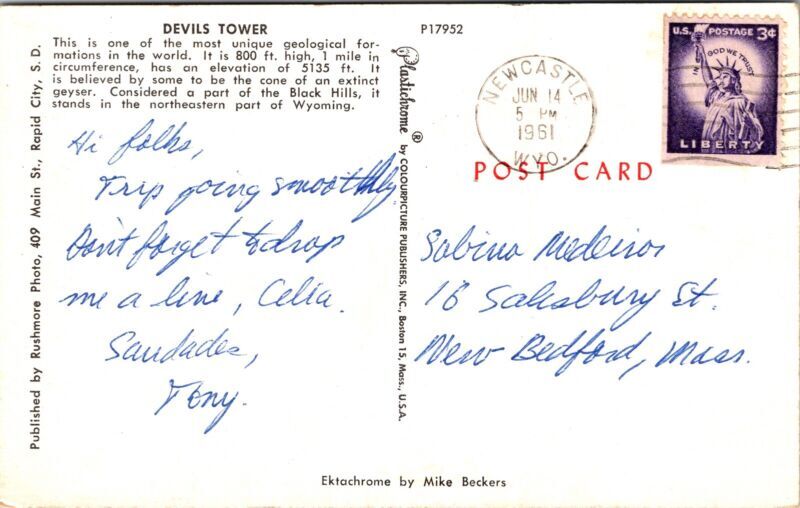 DEVILS TOWER
This is one of the most unique geological for-
mations in the world. It is 800 ft. high, 1 mile in
circumference, has an elevation of 5135 ft. It
is believed by some to be the cone of an extinct
geyser. Considered a part of the Black Hills, it
stands in the northeastern part of Wyoming.
Hi folks,
Trip going smoothly
Don't forget to drop
me a line, Celia.
Saudades,
Tony.
Published by Rushmore Photo, 409 Main St., Rapid City, S. D.
Plastichrome ® by COLOURPICTURE PUBLISHERS, INC., Boston 15, Mass., U.S.A.
P17952
NEWCASTLE
JUN 14
5 PM
1961
WYO.
U.S. POSTAGE 3¢
IN GOD WE TRUST
LIBERTY
POST CARD
Sabino Medeiros
16 Salisbury St.
New Bedford, Mass.
Ektachrome by Mike Beckers